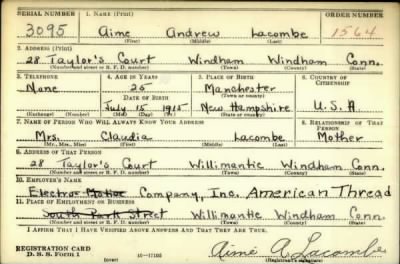 SERIAL NUMBER 1. NAME (Print) ORDER NUMBER
3095 Aime Andrew Lacombe 1564
(First) (Middle) (Last)
2. ADDRESS (Print)
28 Taylor's Court Windham Windham Conn.
(Number and street or R. F. D. number) (Town) (County) (State)
3. TELEPHONE 4. AGE IN YEARS 5. PLACE OF BIRTH 6. COUNTRY OF CITIZENSHIP
None 25 Manchester
DATE OF BIRTH (Town or county)
July 15 1915 New Hampshire U.S.A
(Exchange) (Number) (Mo.) (Day) (Yr.) (State or country)
7. NAME OF PERSON WHO WILL ALWAYS KNOW YOUR ADDRESS 8. RELATIONSHIP OF THAT PERSON
Mrs. Claudia Lacombe Mother
(Mr., Mrs., Miss) (First) (Middle) (Last)
9. ADDRESS OF THAT PERSON
28 Taylor's Court Willimantic Windham Conn.
(Number and street or R. F. D. number) (Town) (County) (State)
10. EMPLOYER'S NAME
Electro Motive Company, Inc. American Thread
11. PLACE OF EMPLOYMENT OR BUSINESS
South Park Street Willimantic Windham Conn.
(Number and street or R. F. D. number) (Town) (County) (State)
I AFFIRM THAT I HAVE VERIFIED ABOVE ANSWERS AND THAT THEY ARE TRUE.
REGISTRATION CARD
D. S. S. Form 1 (over) 16—17105 Aimé A Lacombe
(Registrant's signature)